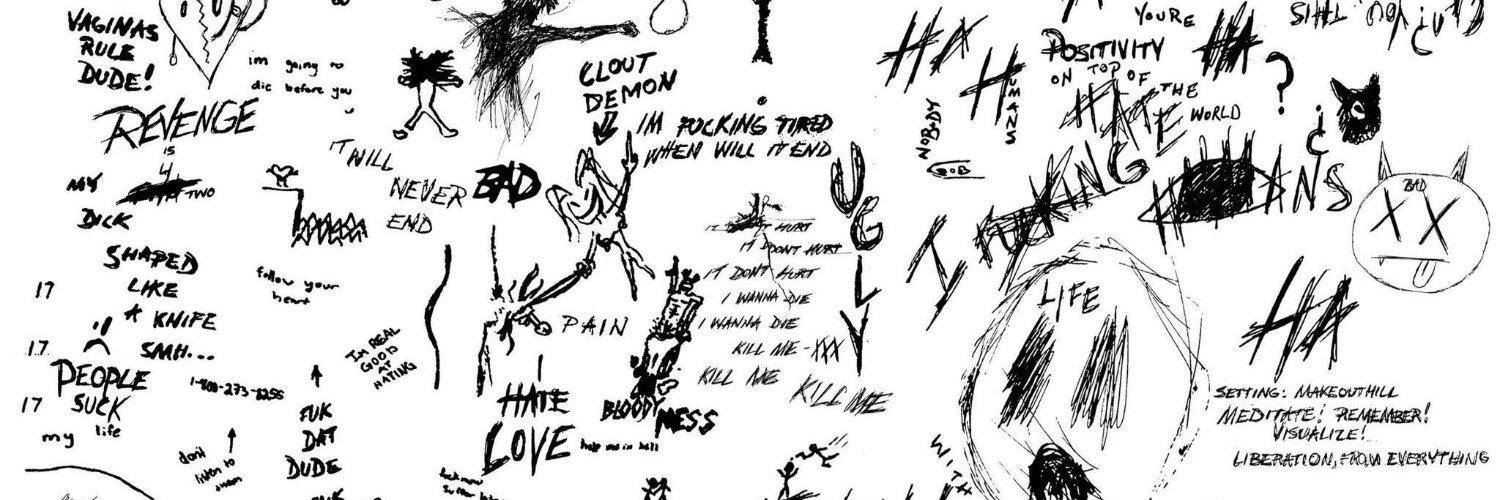 VAGINAS
RULE
DUDE!
im going to
die before you
REVENGE
IS
4
MY
TWO
DICK
SHAPED
LIKE
A KNIFE
SMH...
17
17
17
PEOPLE
SUCK
my life
1-800-273-8255
follow your
heart
don't
listen to
them
FUK
DAT
DUDE
IM REAL
GOOD
AT
HATING
IT WILL
NEVER
END
BAD
CLOUT
DEMON
IM FUCKING TIRED
WHEN WILL IT END
PAIN
I
HATE
LOVE
help me in hell
BLOODY
MESS
IT DONT HURT
IT DONT HURT
IT DONT HURT
I WANNA DIE
I WANNA DIE
KILL ME - XXX
KILL ME
KILL ME
UGLY
HA
HUMANS
NOBODY
BOB
YOURE
POSITIVITY
ON TOP OF
HATE
THE
WORLD
HA
?
SIHT
¿
I FUCKING
HA
LIFE
WITH
BAD
X X
SETTING: MAKEOUTHILL
MEDITATE! REMEMBER!
VISUALIZE!
LIBERATION, FROM EVERYTHING